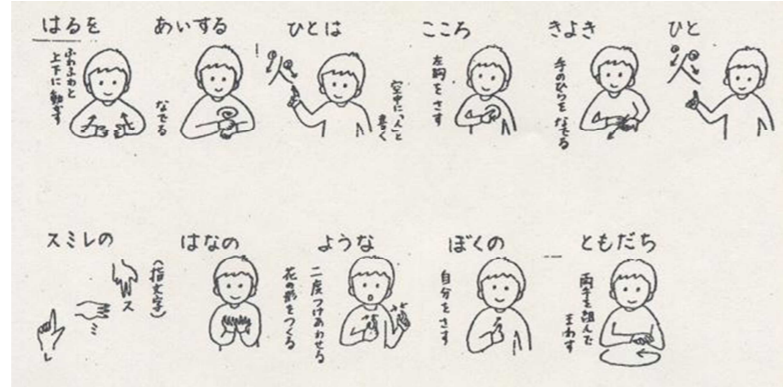 はるを
ふわふわと
上下に動かす
あいする
なでる
ひとは
空中に「人」と
書く
こころ
左胸をさす
きよき
手のひらをなでる
ひと
スミレの
(指文字)
ス
ミ
レ
はなの
花の形をつくる
ような
二度つけあわせる
ぼくの
自分をさす
ともだち
両手を組んで
まわす